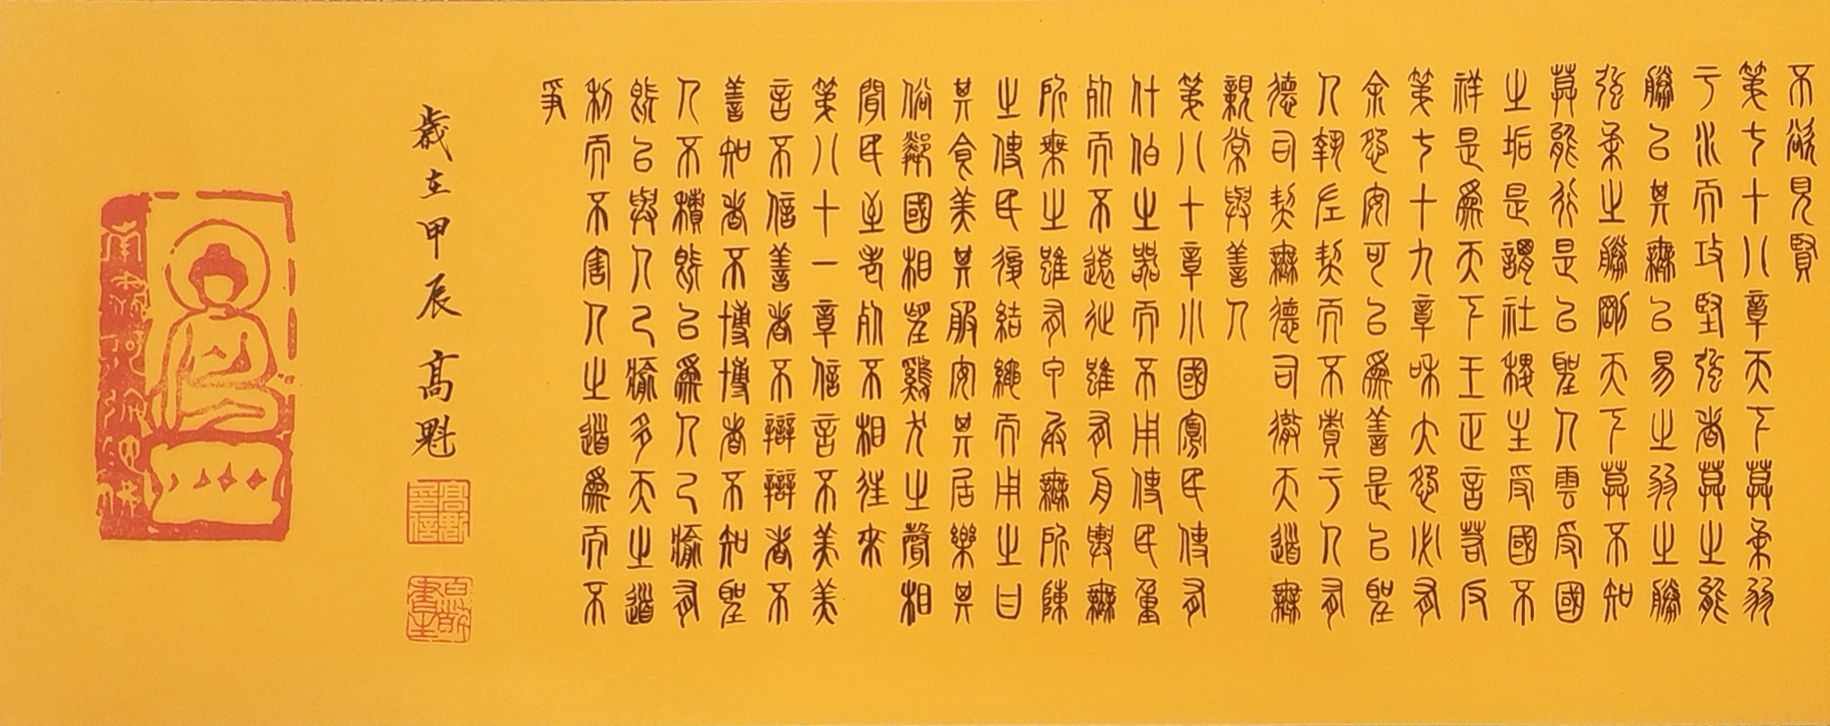 不欲見賢
第七十八章天下莫柔弱
于水而攻堅強者莫之能
勝以其無以易之弱之勝
強柔之勝剛天下莫不知
莫能行是以聖人雲受國
之垢是謂社稷主受國不
祥是為天下王正言若反
第七十九章和大怨必有
余怨安可以為善是以聖
人執左契而不責于人有
德司契無德司徹天道無
親常與善人
第八十章小國寡民使有
什伯之器而不用使民重
死而不遠徙雖有舟輿無
所乘之雖有甲兵無所陳
之使民復結繩而用之曰
其食美其服安其居樂其
俗鄰國相望雞犬之聲相
聞民至老死不相往來
第八十一章信言不美美
言不信善者不辯辯者不
善知者不博博者不知聖
人不積既以為人己愈有
既以與人己愈多天之道
利而不害人之道為而不
爭
歲在甲辰 高魁